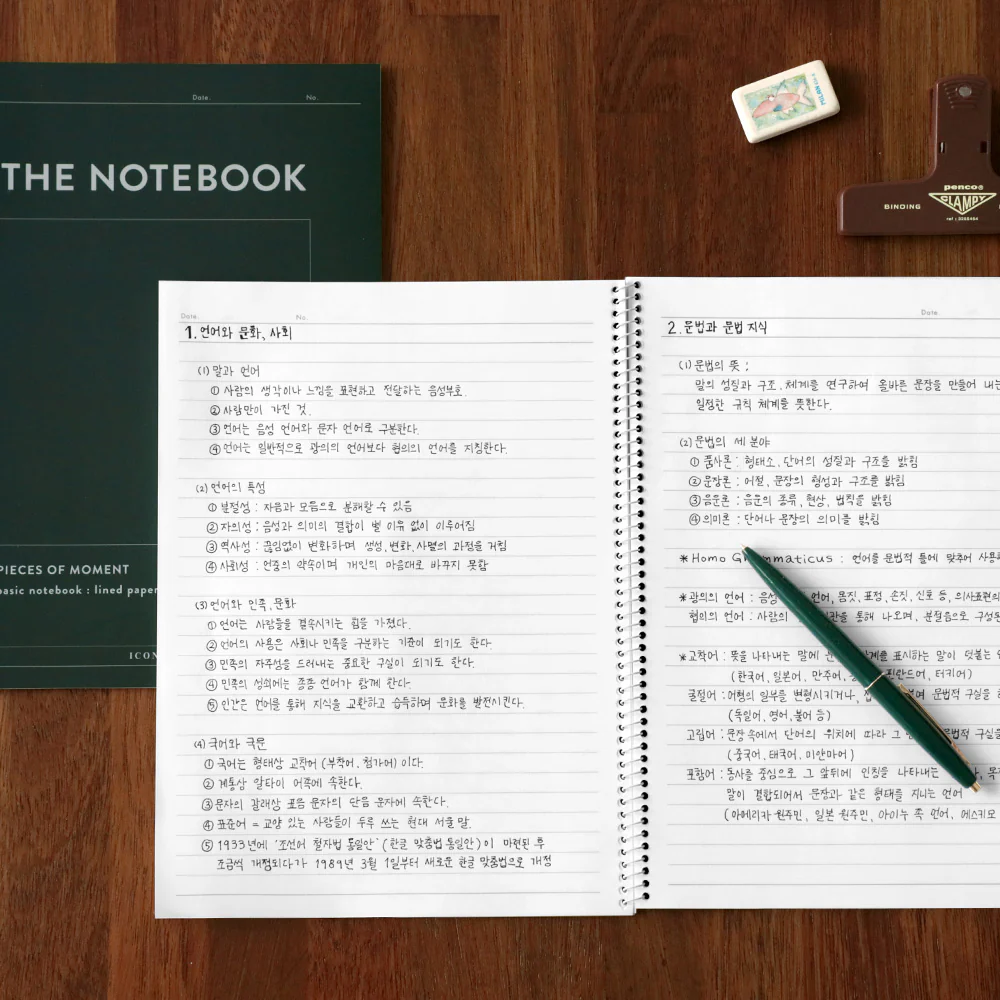 Date.
No.
THE NOTEBOOK
PIECES OF MOMENT
basic notebook : lined paper
ICON
MILAN
penco®
CLAMPY
BINDING
Date.
No.
1. 언어와 문화, 사회
(1) 말과 언어
① 사람의 생각이나 느낌을 표현하고 전달하는 음성부호.
② 사람만이 가진 것.
③ 언어는 음성 언어와 문자 언어로 구분한다.
④ 언어는 일반적으로 광의의 언어보다 협의의 언어를 지칭한다.
(2) 언어의 특성
① 분절성 : 자음과 모음으로 분해할 수 있음
② 자의성 : 음성과 의미의 결합이 별 이유 없이 이루어짐
③ 역사성 : 끊임없이 변화하며 생성, 변화, 사멸의 과정을 거침
④ 사회성 : 언중의 약속이며 개인의 마음대로 바꾸지 못함
(3) 언어와 민족, 문화
① 언어는 사람들을 결속시키는 힘을 가졌다.
② 언어의 사용은 사회나 민족을 구분하는 기준이 되기도 한다.
③ 민족의 자주성을 드러내는 중요한 구실이 되기도 한다.
④ 민족의 성쇠에는 종종 언어가 함께 한다.
⑤ 인간은 언어를 통해 지식을 교환하고 습득하며 문화를 발전시킨다.
(4) 국어와 국문
① 국어는 형태상 교착어 (부착어, 첨가어) 이다.
② 계통상 알타이 어족에 속한다.
③ 문자의 갈래상 표음 문자의 단음 문자에 속한다.
④ 표준어 = 교양 있는 사람들이 두루 쓰는 현대 서울 말.
⑤ 1933년에 '조선어 철자법 통일안' (한글 맞춤법 통일안) 이 마련된 후
조금씩 개정되다가 1989년 3월 1일부터 새로운 한글 맞춤법으로 개정
Date.
2. 문법과 문법 지식
(1) 문법의 뜻 ;
말의 성질과 구조, 체계를 연구하여 올바른 문장을 만들어 내는
일정한 규칙 체계를 뜻한다.
(2) 문법의 세 분야
① 품사론 : 형태소, 단어의 성질과 구조를 밝힘
② 문장론 : 어절, 문장의 형성과 구조를 밝힘
③ 음운론 : 음운의 종류, 현상, 법칙을 밝힘
④ 의미론 : 단어나 문장의 의미를 밝힘
* Homo Gr mmaticus : 언어를 문법적 틀에 맞추어 사용
* 광의의 언어 : 음성 언어, 몸짓, 표정, 손짓, 신호 등, 의사표현의
협의의 언어 : 사람의 통해 나오며, 분절음으로 구성된
* 교착어 : 뜻을 나타내는 말에 표시하는 말이 덧붙는
(한국어, 일본어, 만주어, 핀란드어, 터키어)
굴절어 : 어형의 일부를 변형시키거나, 문법적 구실을
(독일어, 영어, 불어 등)
고립어 : 문장 속에서 단어의 위치에 따라 그 문법적 구실을
(중국어, 태국어, 미얀마어)
포함어 : 동사를 중심으로 그 앞뒤에 인칭을 나타내는
말이 결합되어서 문장과 같은 형태를 지니는 언어
(아메리카 원주민, 일본 원주민, 아이누 족 언어, 에스키모